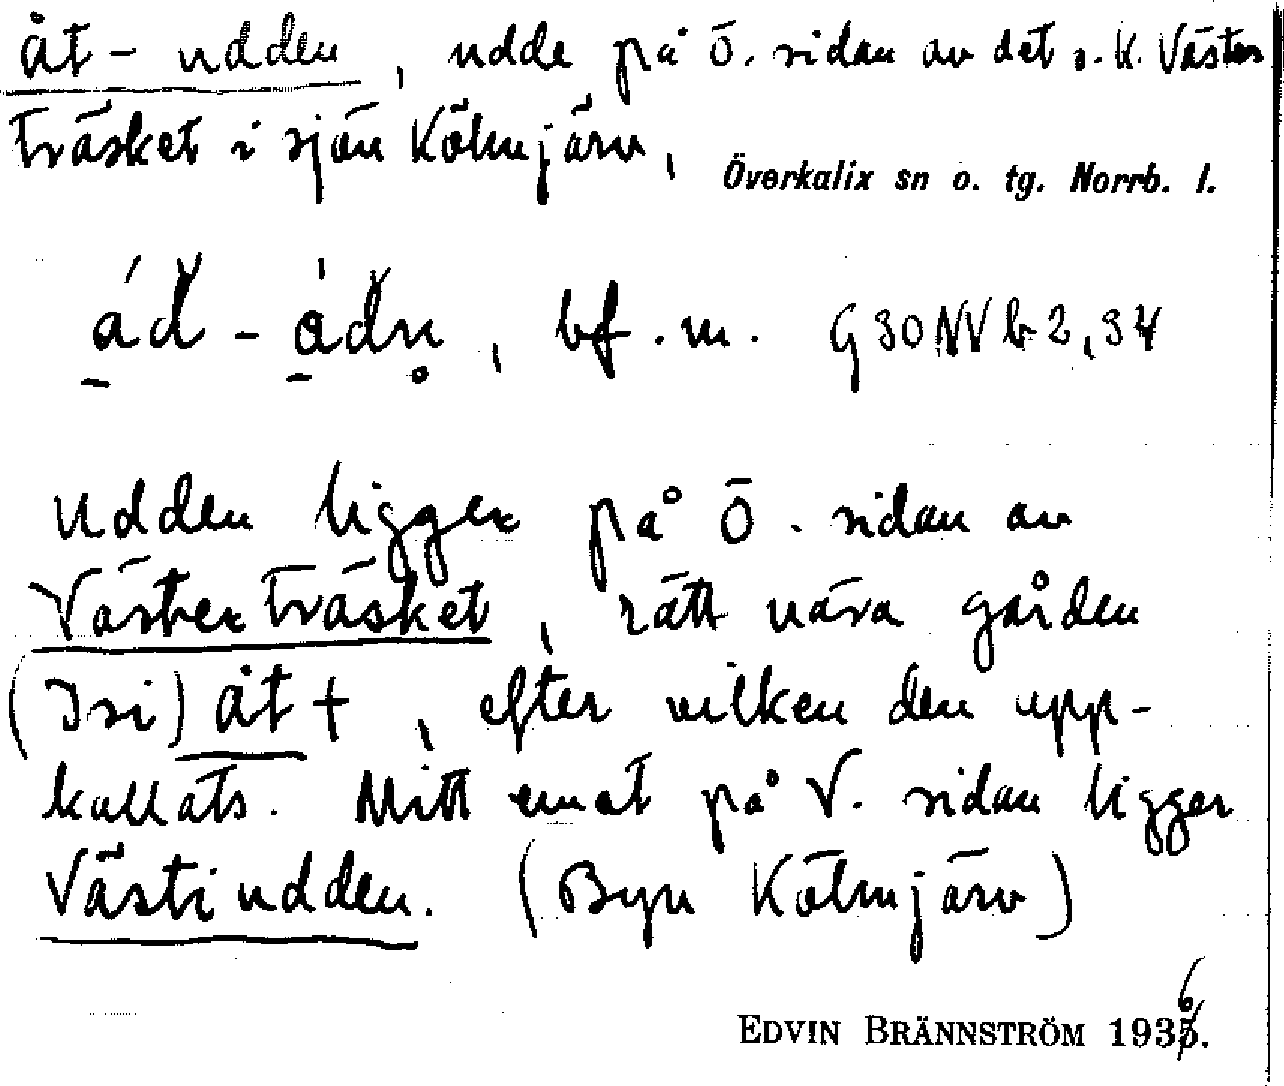 åt-udden, udde på Ö. sidan av det s.k. Väster
träsket i sjön Kölmjärv,
Överkalix sn o. tg. Norrb. l.
bf. m. G30NVb2,34
Udden ligger på Ö. sidan av
Västerträsket, rätt nära gården
(Isi) åt +, efter vilken den upp-
kallats. Mitt emot på V. sidan ligger
Västiudden. (Byn Kölmjärv)
EDVIN BRÄNNSTRÖM 1936.